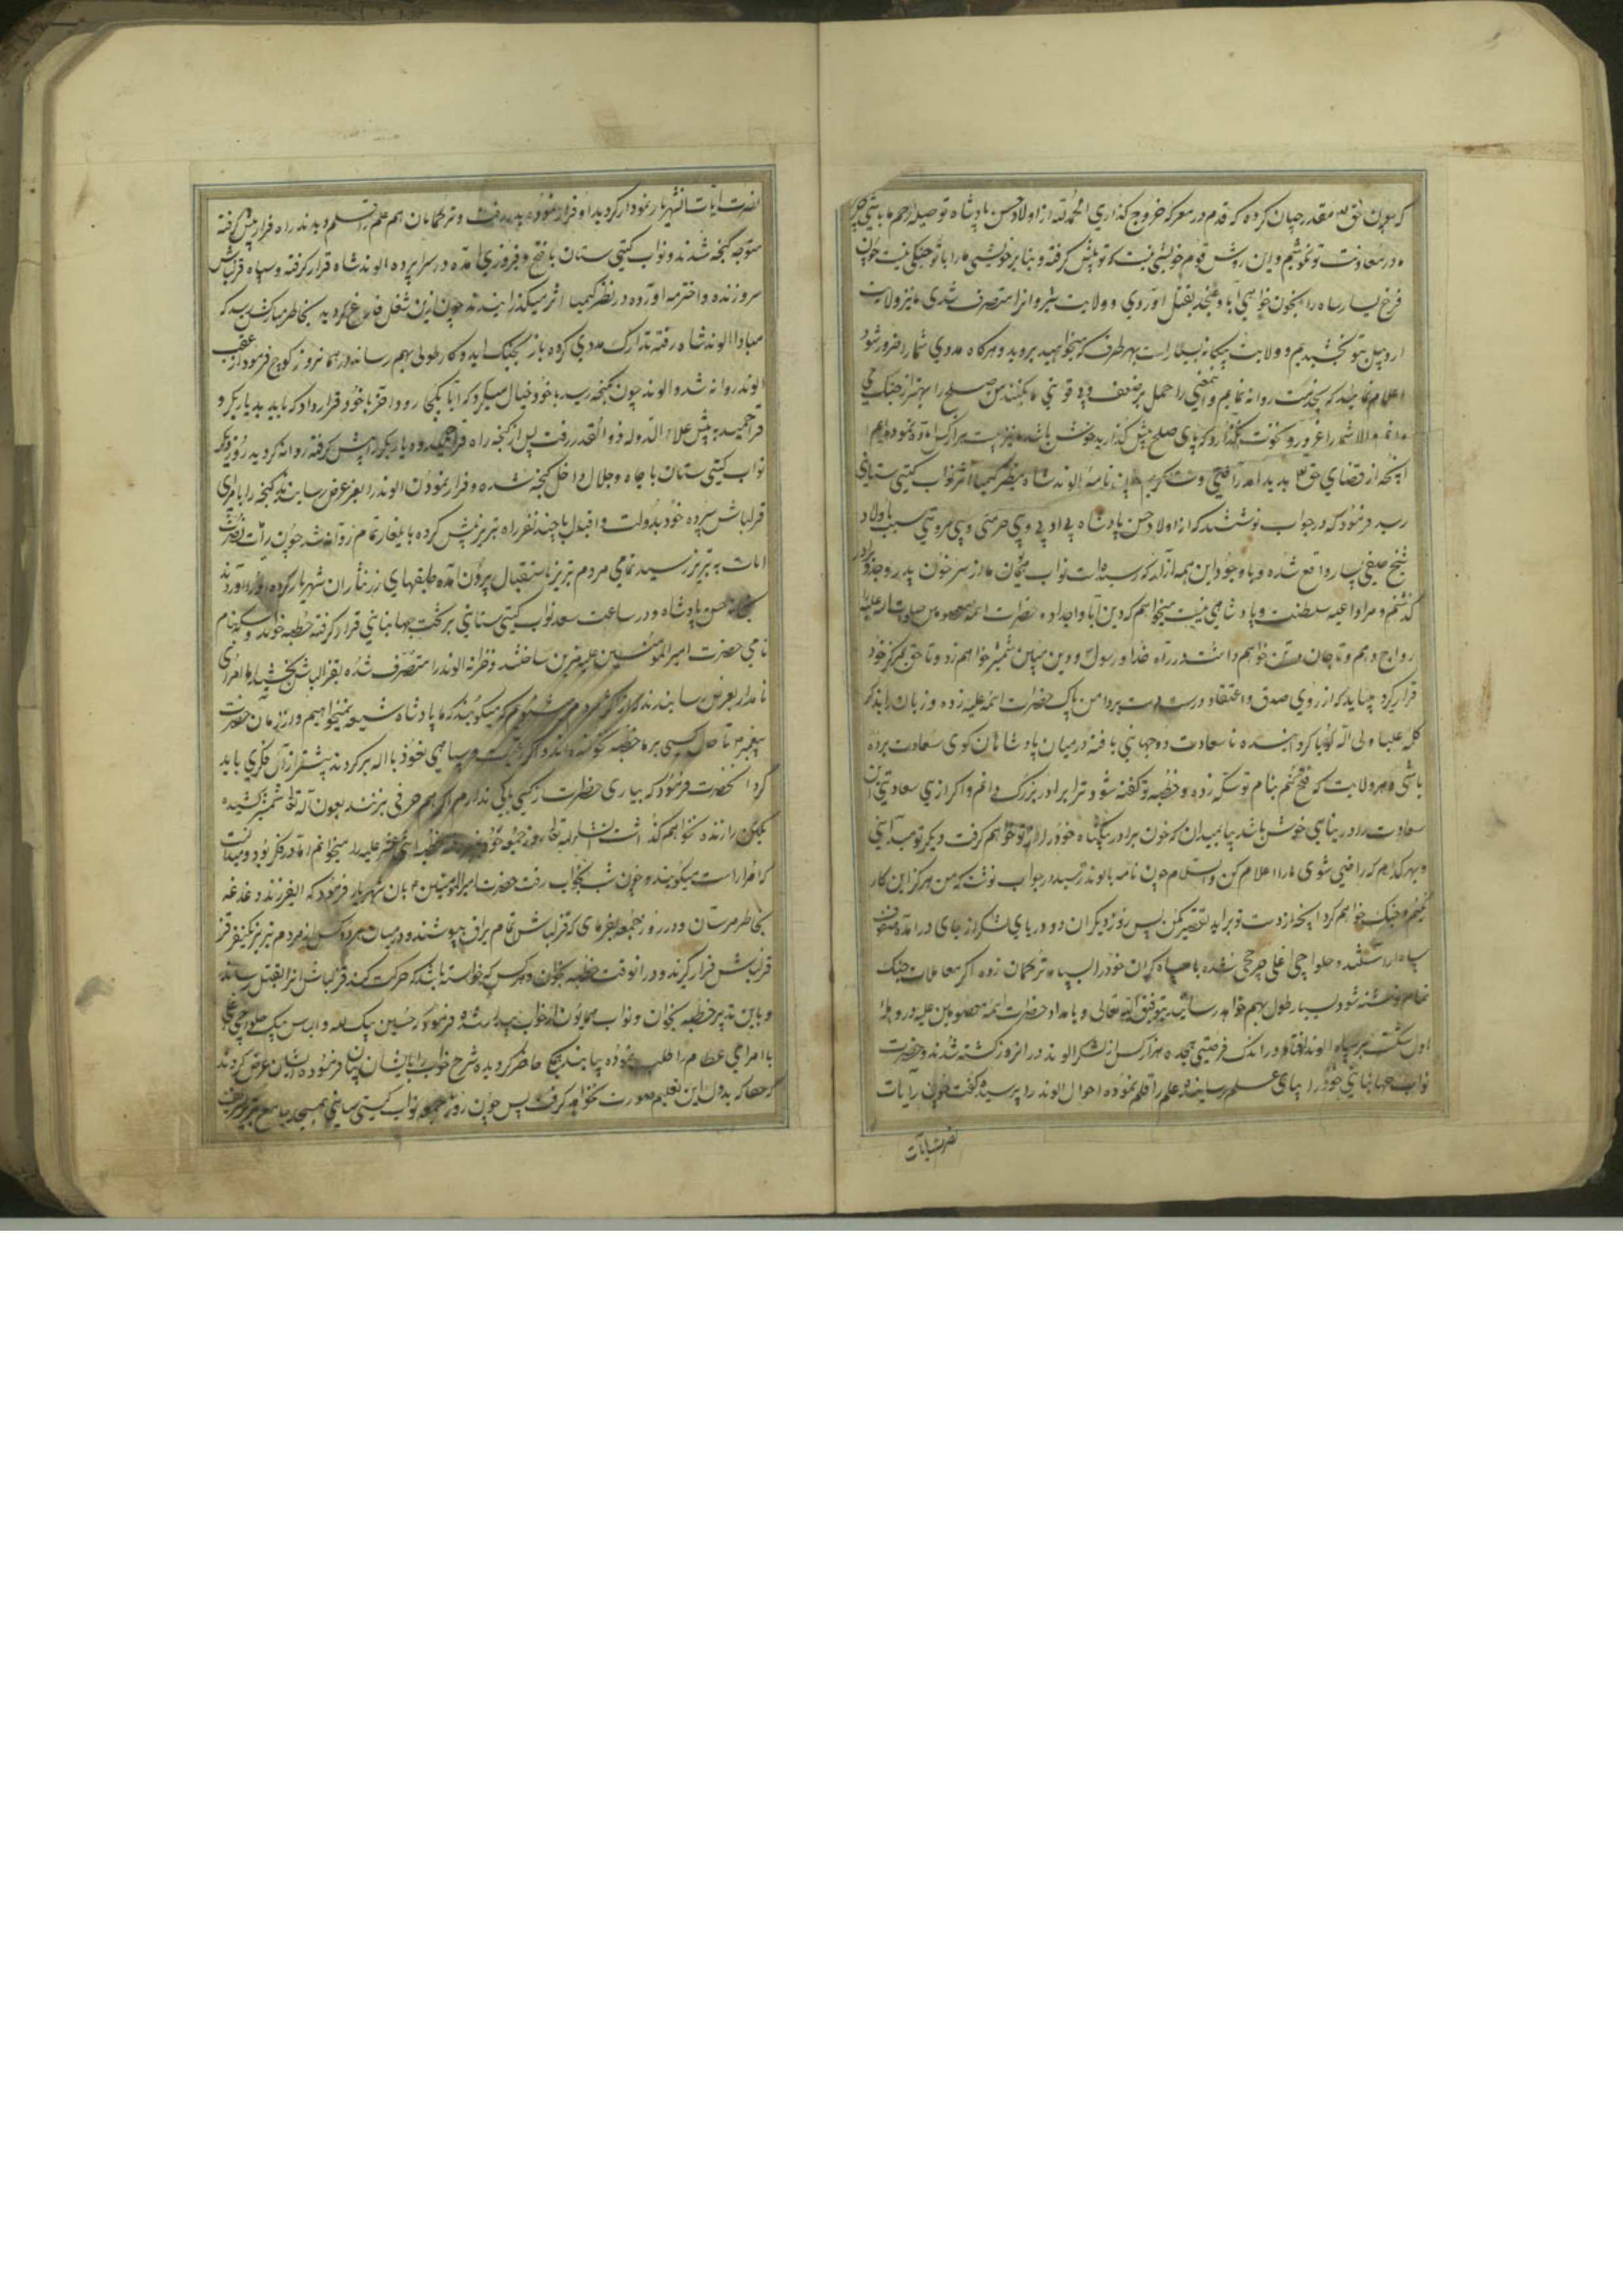 که چون حق مقدر چنان کرده که قدم در معرکه خروج گذاری الحمدلله از اولاد حسن پادشاه تو صله رحم ما
در سعادت تو و این روش قوم خویشی نیست که تو پیش گرفته و بنابر خویشی ما را با تو جنگی نیست چون
فرخ یسار را بخون خواهی آبا بقتل آوردی و ولایت شروانرا متصرف شدی ما نیز ولایت
اردبیل بتو بخشیدیم و ولایت بیگانه بسیار است بهر طرف که میخواهید بروید و هرگاه مددی شما را ضرور شود
اعلام نمائید که بخدمت روانه نمایم و این معنی را حمل بر ضعف و بی قوتی ما نکنند من صلح را بهتر از جنگ می
دانم و الا شما را غرور و نخوت نگذارد که پای صلح پیش گذارید
آنچه از قضای حق بدید آمد نامه الوند شاه بنظر کیمیا اثر نواب گیتی ستانی
رسید فرمود که در جواب نوشتند که از اولاد حسن پادشاه بی ادبی و بی حرمتی و بی مروتی نسبت باولاد
شیخ صفی بسیار واقع شده و با وجود این همه آزار که رسیده است نواب همایون ما از سر خون پدر و جد و برادر
گذشتم و مرا داعیه سلطنت و پادشاهی نیست میخواهم که دین آبا و اجداد حضرات ائمه معصومین صلوات الله علیه را
رواج دهم و تا جان در تن خواهم داشت در راه خدا و رسول و دین مبین شمشیر خواهم زد و تا حق بمرکز خود
قرار گیرد میباید که از روی صدق و اعتقاد درست دست بر دامن پاک حضرات ائمه علیه زده و زبان را بذکر
کلمه علیا ولی الله گویا گردانیده تا سعادت دو جهانی یافته در میان پادشاهان گوی سعادت برده
باشی و هر ولایت که فتح کنم بنام تو سکه زده و خطبه تو گفته شود و ترا برادر بزرگ دانم و اگر ازین سعادت
سعادت را در نیابی خوش باشد بیا بمیدان که خون برادر بیگناه خود را از تو خواهم گرفت دیگر تو میدانی
و بهر کدام که راضی شوی ما را اعلام کن والسلام چون نامه بالوند رسید در جواب نوشت که من هرگز این کار
نمیکنم و جنگ خواهم کرد آنچه از دست تو برآید تقصیر مکن پس روز دیگر آن دو دریای لشکر از جای درآمده صفوف
سپاه آراستند و حلواچی اغلی چرخچی شده با سپاه گران خود را بسپاه ترکمان زده اگر معاملات جنگ
تمام نوشته شود بسیار طول بهم خواهد رسانید بتوفیق الله تعالی و بامداد حضرات ائمه معصومین علیه در وهله
اول شکست بر سپاه الوند افتاد و در اندک فرصتی هجده هزار کس از لشکر الوند در آنروز کشته شدند و حضرت
نواب جهانبانی خود را بپای علم رسانیده علم را قلم نموده احوال الوند را پرسید گفت چون رایات
نصرت آیات
نصرت آیات شهریار نمودار گردید او فرار نموده بدر رفت و ترکمانان هم علم را قلم دیدند راه فرار پیش گرفته
متوجه گنجه شدند و نواب گیتی ستان با فتح و فیروزی آمده در سراپرده الوند شاه قرار گرفته و سپاه قزلباش
سر و زنده و اخترمه آورده در نظر کیمیا اثر میگذرانیدند چون ازین شغل فارغ گردید بخاطر مبارکش رسید که
مبادا الوند شاه رفته تدارک مددی کرده باز بجنگ آید و کار طولی بهم رساند در همانروز کوچ فرمود از عقب
الوند روانه شد و الوند چون بگنجه رسید با خود خیال میکرد که آیا بکجا رود آخر با خود قرار داد که باید بدیاربکر و
قراحمید به پیش علاء الدوله ذوالقدر رفت پس از گنجه راه قراحمید و دیاربکر را پیش گرفته روانه گردید روز دیگر
نواب گیتی ستان با جاه و جلال داخل گنجه شده و فرار نمودن الوند را بعرض رسانیدند گنجه را بامرای
قزلباش سپرده خود بدولت و اقبال با چند نفر راه تبریز پیش کرده بایلغار تمام روانه شد چون رایات نصرت
آیات به تبریز رسید تمامی مردم تبریز باستقبال بیرون آمده طبقهای زر نثار آن شهریار کرده او را آوردند
بخانه حسن پادشاه و در ساعت سعد نواب گیتی ستانی بر تخت جهانبانی قرار گرفته خطبه خواند و سکه بنام
نامی حضرت امیرالمومنین علیه مزین ساختند و خزانه الوند را متصرف شده بقزلباش بخشید اما امرای
نامدار بعرض رسانیدند که میگویند که ما پادشاه شیعه نمیخواهیم و از زمان حضرت
پیغمبر تا حال کسی بر ملا خطبه نخوانده اند و اگر رعیت و سپاهی نعوذ بالله برگردند پیشتر از آن فکری باید
کرد آنحضرت فرمود که بیاری حضرت از کسی باکی ندارم اگر هم حرفی بزنند بعون الله تعالی شمشیر کشیده
یک کس را زنده نخواهم گذاشت انشاءالله تعالی روز جمعه خود خطبه ائمه اثنی عشر علیه را میخوانم اما در فکر بود و میدانست
که امرا راست میگویند و چون شب بخواب رفت حضرت امیرالمومنین بآن شهریار فرمود که ای فرزند دغدغه
بخاطر مرسان و در روز جمعه بفرمای که قزلباش تمام یراق بپوشند و در میان هر دو کس از مردم تبریز یکنفر
قزلباش قرار گیرند و در آنوقت خطبه بخوان و هر کس که خواسته باشد که حرکت کند قزلباش آنرا بقتل رساند
و باین تدبیر خطبه بخوان و نواب همایون از خواب بیدار شد و فرمود که حسین بیک لله و الیاس بیک حلواچی
با امرای عظام را طلب نموده بیایند همگی حاضر گردیده شرح خواب را بایشان بیان فرموده ایشان عرض کردند
که حقا که بدون این تعلیم صورت نخواهد گرفت پس چون روز جمعه نواب گیتی ستانی بمسجد جامع تبریز رفت